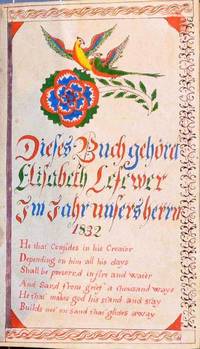 Dieses Buch gehöra
Elisabeth Lesewer
Im Jahr unsers herrn
1832
He that Confides in his Creator
Depending on him all his days
Shall be preserved in fire and water
And Sav'd from grief a thousand ways
He that makes god his stand and stay
Builds not on sand that glides away